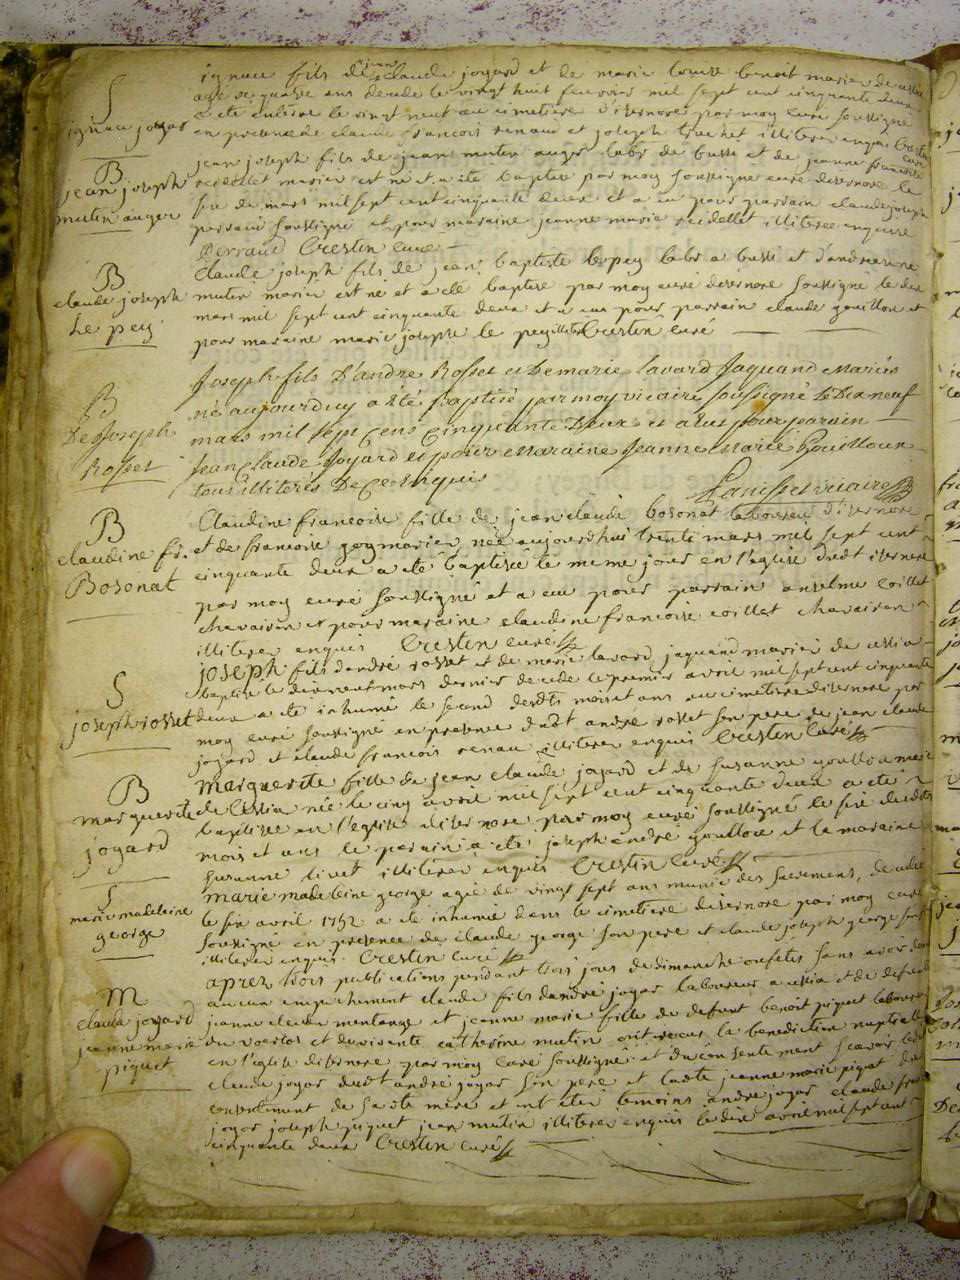 S
ignace jogard
ignace fils de jean claude jogard et de marie louise benoit mariez de ussia
agé de quatre ans decede le vingt huit fevrier mil sept cent cinquante deux
a été inhumé le vingt neuf au cimetiere d'isernore par moy curé soussigné
en presence de claude francois renaud et joseph livet illiterez enquis Crestin
curé
B
jean joseph
mutin auger
jean joseph fils de jean mutin auger labr de bussi et de jeanne francoise
reidellet mariez est né et a été baptisé par moy soussigné curé disernore le
six de mars mil sept cent cinquante deux et a eu pour parrain claude joseph
perraud soussigné et pour maraine jeanne marie reidellet illiteree enquise
Perraud Crestin curé
B
claude joseph
le pey
Claude joseph fils de jean baptiste le pey labr a bussi et d'andreanne
mutin mariez est né et a été baptisé par moy curé disernore soussigné le dix
mars mil sept cent cinquante deux et a eu pour parrain claude gouillon et
pour maraine marie joseph le pey illiterez Crestin curé
B
De Joseph
Rosset
Joseph fils D'andre Rosset et De marie Lavard Jaquand Mariés
né aujourduy a été Baptisé par moy vicaire soussigné le Dix neuf
mars mil sept Cens Cinquante Deux et a eut pour parain
Jean Claude Joyard et pour Maraine Jeanne Marie Gouilloux
tous illiterés De Ce enquis
vicaire
B
claudine fr.
Bosonat
Claudine francoise fille de jean claude bosonat laboureur d'isernore
et de francoise goy mariez née aujourdhui trente mars mil sept cent
cinquante deux a été baptisée le meme jour en l'eglise dudt isernore
par moy curé soussigné et a eu pour parrain anselme coillet
chavaisen et pour maraine claudine francoise coillet chavaisen
illiterez enquis Crestin curé
S
joseph rosset
joseph fils d'andré rosset et de marie lavard jaquand mariez de ussia
baptisé le dixneuf mars dernier decede le premier avril mil sept cent cinquante
deux a été inhumé le second desdts mois et ans au cimetiere disernore par
moy curé soussigné en presence dudt andré rosset son pere de jean claude
jogard et claude francois renau illiterez enquis Crestin curé
B
marguerite
jogard
Marguerite fille de jean claude jogard et de susanne goullio mariez
de Cessia née le cinq avril mil sept cent cinquante deux a été
baptisée en l'eglise disernore par moy curé soussigné le six desdts
mois et ans le parain a été joseph andré goulloux et la maraine
susanne livet illiterez enquis Crestin curé
S
marie madeleine
george
marie madeleine george agée de vingt sept ans munie des sacremens, decedée
le six avril 1752 a été inhumée dans le cimetiere disernore par moy curé
soussigné en presence de claude george son pere et claude joseph george
illiterez enquis Crestin curé
M
claude jogard
jeanne marie
piquet
apres trois publications pendant trois jours de dimanche ou fetes sans avoir
aucun empechement claude fils dandré jogar laboureur a ussia et de defunte
jeanne claude montange et jeanne marie fille de defunt benoit piquet laboureur
du voerloz et de vivante catherine mutin ont receus la benediction nuptiale
en l'eglise disernore par moy curé soussigné et du consentement scavoir led
claude jogar dudt andré jogar son pere et ladte jeanne marie piquet du
consentement de sadte mere et ont été temoins andré jogar claude
jogar joseph piquet jean mutin illiterez enquis le dix avril mil sept cent
cinquante deux Crestin curé